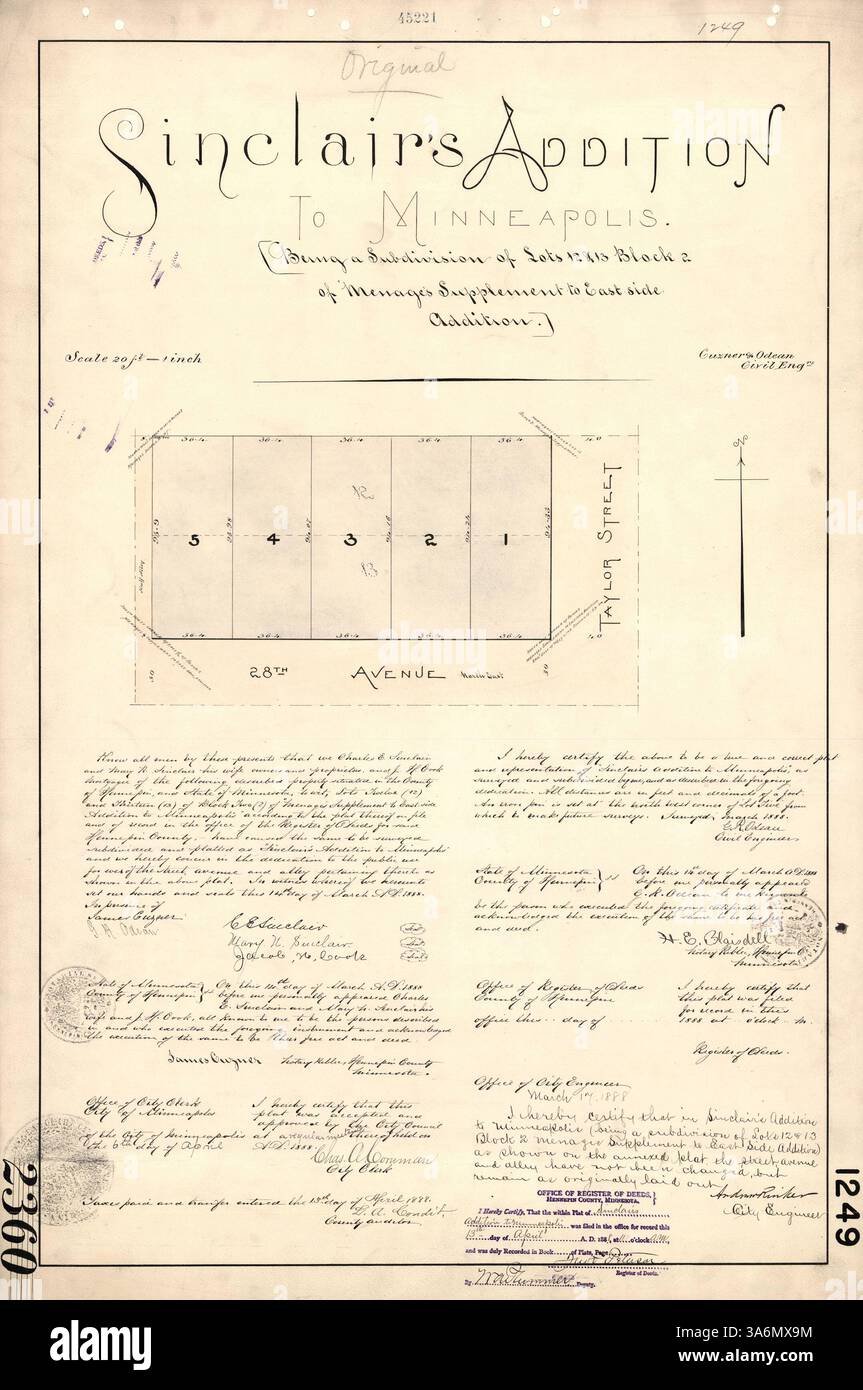 45221
1249
Original
Sinclair's Addition
To Minneapolis.
[Being a Subdivision of Lots 12 & 13 Block 2
of Menage's Supplement to East side
Addition.]
Scale 20 ft — 1 inch
Cuzner & Odean
Civil Engrs
36.4 36.4 36.4 36.4 36.4 40
12
5 4 3 2 1
13
TAYLOR STREET
N
36.4 36.4 36.4 36.4 40
28TH AVENUE North East
Know all men by these presents that we Charles E. Sinclair
and Mary N. Sinclair his wife owners and proprietors, and J. H. Cook
mortgagee of the following described property situated in the County
of Hennepin, and State of Minnesota, to wit, Lots Twelve (12)
and Thirteen (13) of Block Two (2) of Menage's Supplement to East side
Addition to Minneapolis according to the plat thereof on file
and of record in the office of the Register of Deeds for said
Hennepin County, have caused the same to be surveyed
subdivided and platted as Sinclair's Addition to Minneapolis
and we hereby concur in the dedication to the public use
forever of the street, avenue and alley pertaining thereto as
shown in the above plat. In witness whereof we hereunto
set our hands and seals this 14th day of March A.D. 1888.
In presence of
James Cuzner
C E Sinclair
Mary N. Sinclair
Jacob H. Cook
State of Minnesota } ss On this 14th day of March A.D. 1888
County of Hennepin before me personally appeared Charles
E. Sinclair and Mary N. Sinclair his
wife and J. H. Cook, all known to me to be the persons described
in and who executed the foregoing instrument and acknowledged
the execution of the same to be their free act and deed.
James Cuzner Notary Public, Hennepin County
Minnesota.
Office of City Clerk
City of Minneapolis
I hereby certify that this
plat was accepted and
approved by the City Council
of the City of Minneapolis at a regular meeting thereof held on
the 6th day of April A.D. 1888.
Chas. A. Corman
City Clerk
Taxes paid and transfer entered the 13th day of April 1888.
L. A. Condit.
County auditor.
I hereby certify the above to be a true and correct plat
and representation of Sinclair's Addition to Minneapolis, as
surveyed and subdivided by me, and as described in the foregoing
dedication. All distances are in feet and decimals of a foot.
An iron pin is set at the north west corner of Lot Five from
which to make future surveys. Surveyed, March 1888.
E. K. Odean
Civil Engineer
State of Minnesota } ss On this 15th day of March A.D. 1888
County of Hennepin before me personally appeared
E. K. Odean to me known to
be the person who executed the foregoing certificate and
acknowledged the execution of the same to be his free act
and deed.
H. E. Blaisdell
Notary Public, Hennepin Co
Minnesota
Office of Register of Deeds
County of Hennepin
I hereby certify that
this plat was filed
for record in this
office this day of 1888 at o'clock M.
Register of Deeds.
Office of City Engineer
March 17, 1888
I hereby certify that in Sinclair's Addition
to Minneapolis (being a subdivision of Lots 12 & 13
Block 2 Menage Supplement to East Side Addition)
as shown on the annexed plat, the street, avenue
and alley have not been changed, but
remain as originally laid out
Andrew Rinker
City Engineer
OFFICE OF REGISTER OF DEEDS,
HENNEPIN COUNTY, MINNESOTA.
I Hereby Certify, That the within Plat of Sinclairs
Addition to Minneapolis was filed in the office for record this
13th day of April A. D. 188 at 11 o'clock A.M.
and was duly Recorded in Book of Plats, Page
Register of Deeds.
By Deputy.
2360
1249
alamy
Image ID: 3A6MX9M
www.alamy.com